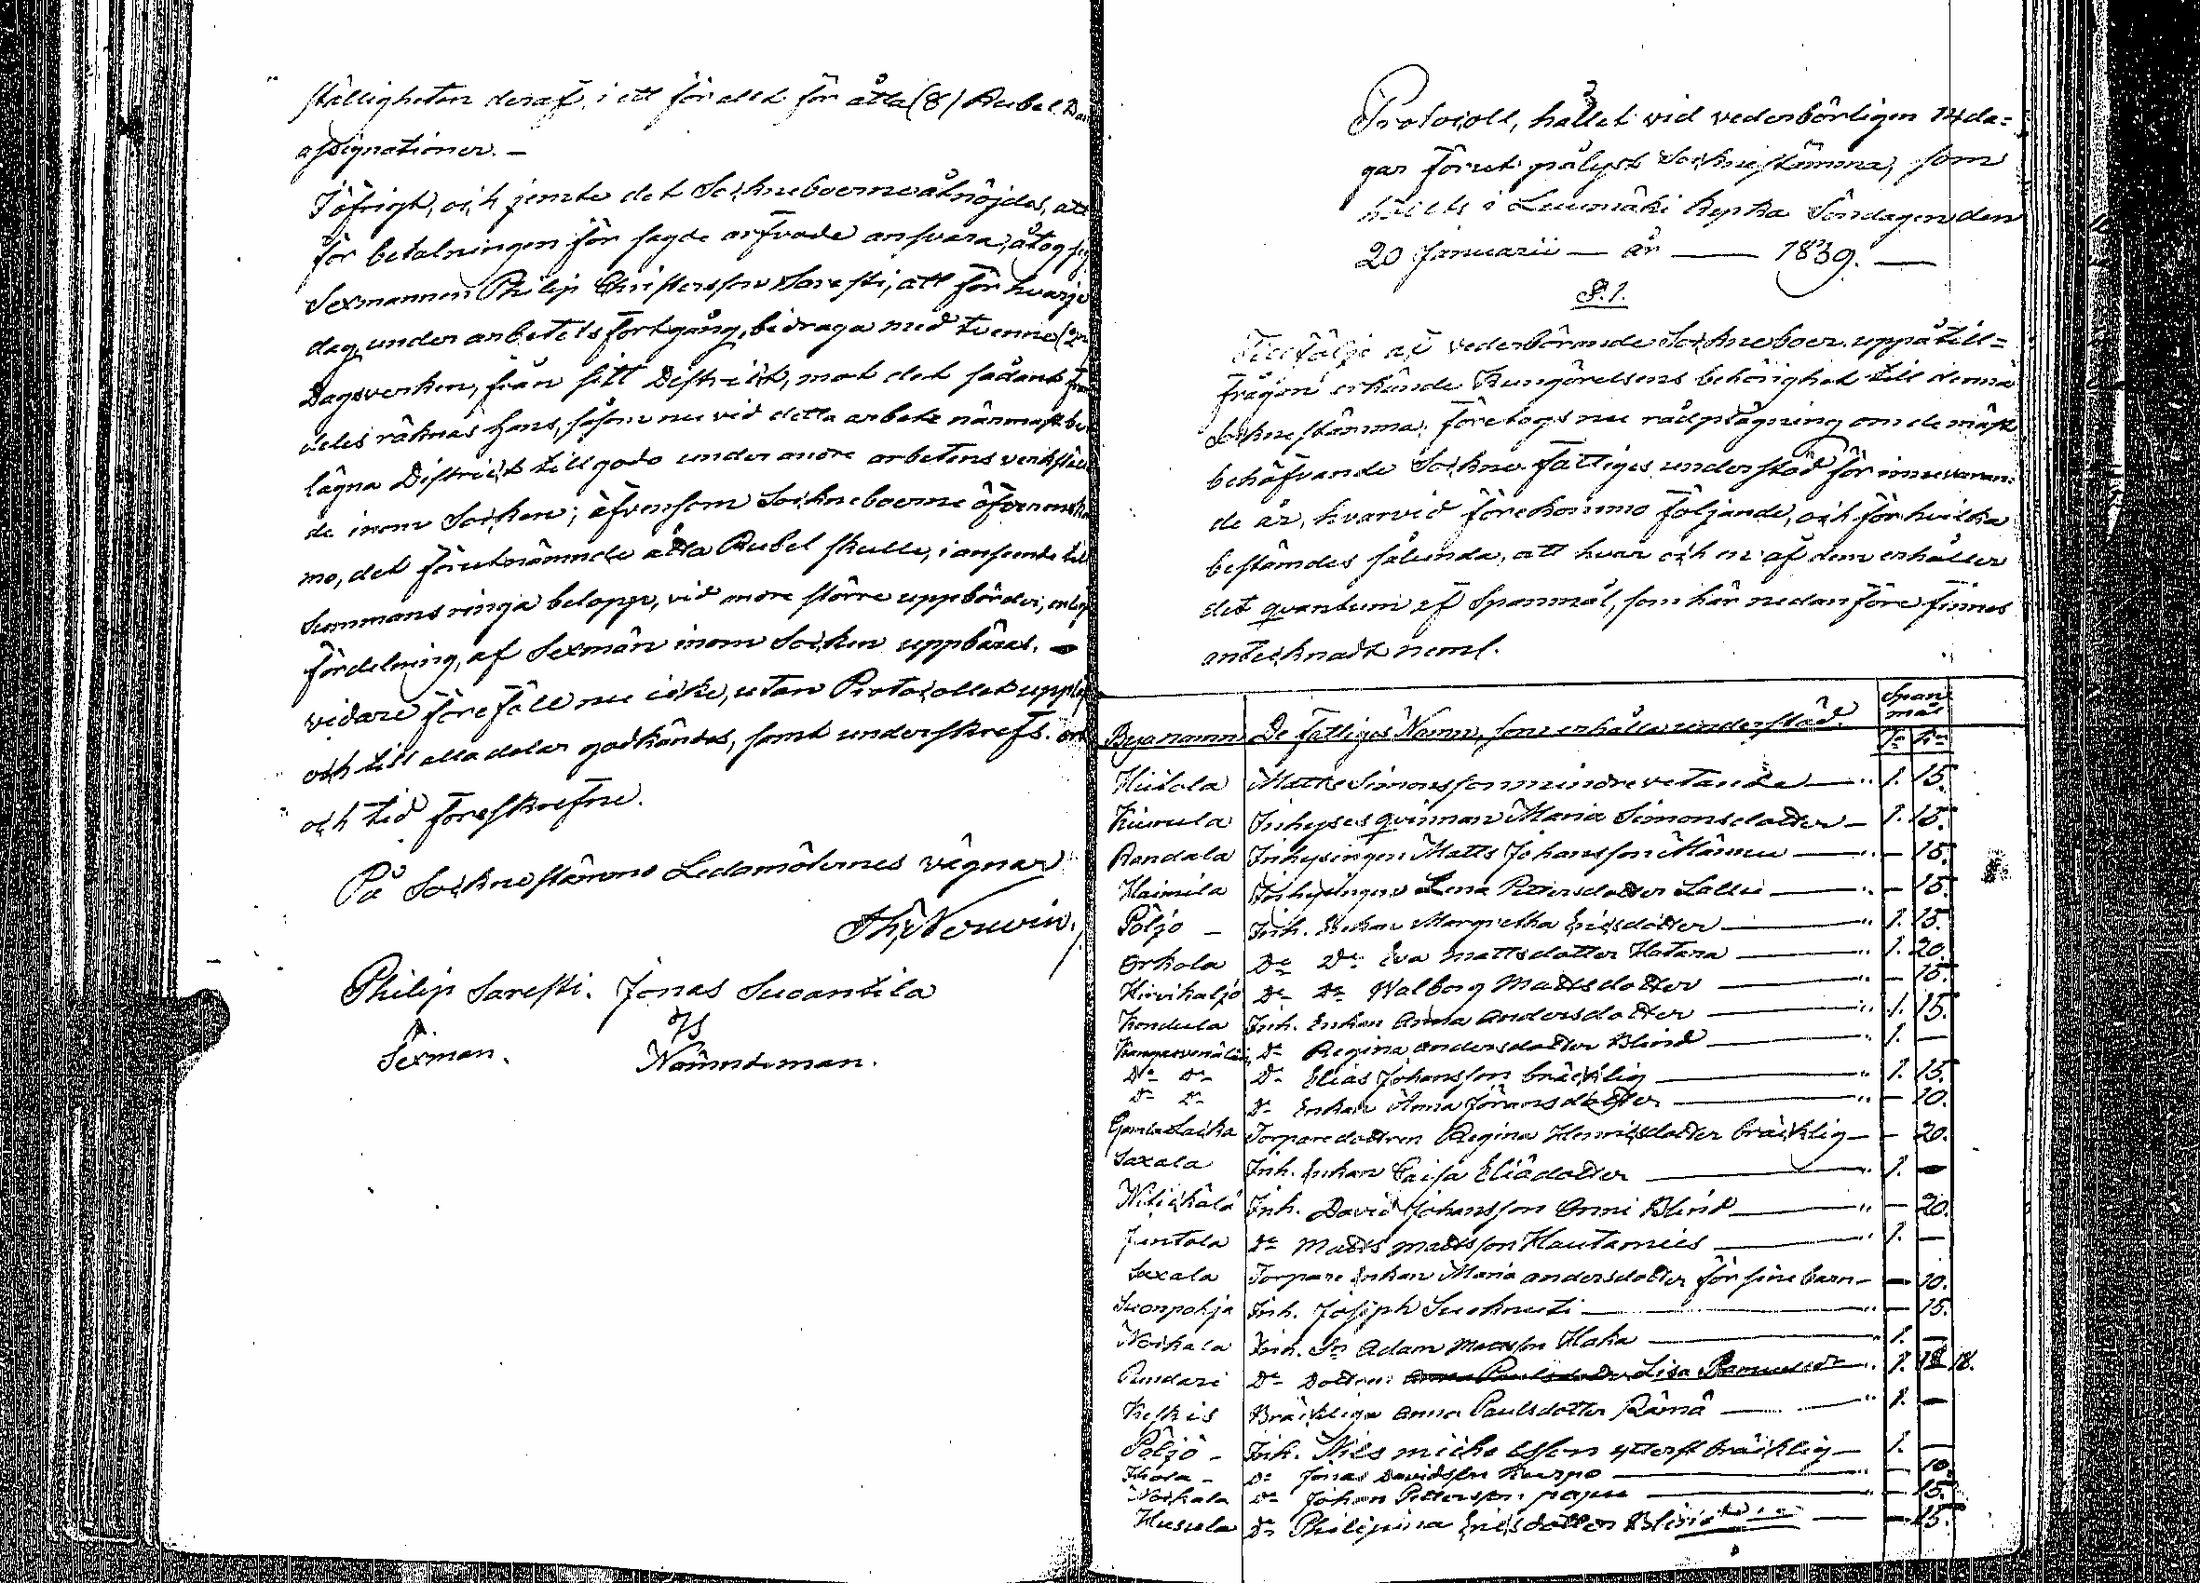 ställigheten deraf, i ett för allt för åtta (8) Rubel
assignationer. —
I öfrigt, och jemte det Sockneboerne åtnöjdes, att
för betalningen för sagde arfvode ansvara, åtog sig
Sexmannen Philip Christersson Saresti, att för hvarje
dag under arbetets fortgång, bidraga med tvenne (2
Dagsverken, från sitt District, mot det sådant
deles räknas hans, såsom nu vid detta arbete närmast be-
lägna District till godo under andre arbetens verkställ
de inom Socken; äfvensom Sockneboerne öfverens
mo, det förutnämnde åtta Rubel skulle, i anseende till
Summans ringa belopp, vid andre större uppbörder, enligt
fördelning, af Sexmän inom Socken uppbäras. —
vidare föreföll nu icke, utan Protocollet upp
och till alla delar godkändes, samt underskrefs. Ort
och tid föreskrefne.
På Sockne stämmo Ledamöternes vägnar
Philip Saresti. Jonas Suoantila
Sexman. Nämndeman.
Protocoll, hållet vid vederbörligen 14 da=
gar förut pålyst Socknestämma, som
hölls i Luumäki kyrka Söndagen den
20 Januarii — år — 1839. —
§. 1.
Till följe af vederbörande Sockneboer uppå till=
frågan erkände Kungörelsens behörighet till denna
Socknestämma, företogs nu rådplägning om de mäst
behöfvande Sockne fattiges understöd för innevaran=
de år, hvarvid förekommo följande, och för hvilka
bestämdes sålunda, att hvar och en af dem erhåller
det quantum af Spanmål, som här nedanföre finnes
antecknadt neml.
Byanamn De fattiges Namn, som erhålla understöd. Spanmål
Huitola Matts Simonsson mindre vetande — " 1. 15.
Kiurula Inhyses qvinnan Maria Simonsdotter — 1. 15.
Randala Inhysingen Matts Johansson Männu — " — 15.
Haimila Inhysingen Lena Pettersdotter Lallu — " — 15.
Pöljö — Inh. Enkan Margretha Ericsdotter — " 1. 15.
Orkola Do Do Eva Mattsdotter Hatara — " 1. 20.
Hirvikaljo Do Do Walborg Mattsdotter — " — 15.
Kondula Inh. Enkan Anna Andersdotter — " 1. 15.
Do Regina Andersdotter Blind — " 1. —
Do Do Do Elias Johansson bräcklig — " 1. 15.
Do Do Do Enkan Anna Göransdotter — " — 10.
Torparedottren Regina Henricsdotter bräcklig — — 20.
Saxala Inh. Enkan Caisa Eliædotter — " 1. —
Inh. David Johansson Onni Blind — " — 20.
Juntola Do Matts Mattsson Hautamies — " 1. —
Saxala Torpare Enkan Maria Andersdotter för sine barn — — 10.
Suonpohja Inh. Joseph Suoknuuti — " — 15.
Inh. Sn Adam Mattsson Haka — " 1. —
Do Dottren Anna Paulsdotter Lisa — " 1. 18.
Keskis Bräckliga Anna Paulsdotter Rämä — " 1. —
Pöljö — Inh. Nils Michelsson ytterst bräcklig — 1. —
Do Jonas Davidsson Kurpo — " — 10.
Do Johan Pettersson — " — 15.
Husula Do Philipina Ericsdotter Blind — — 15.